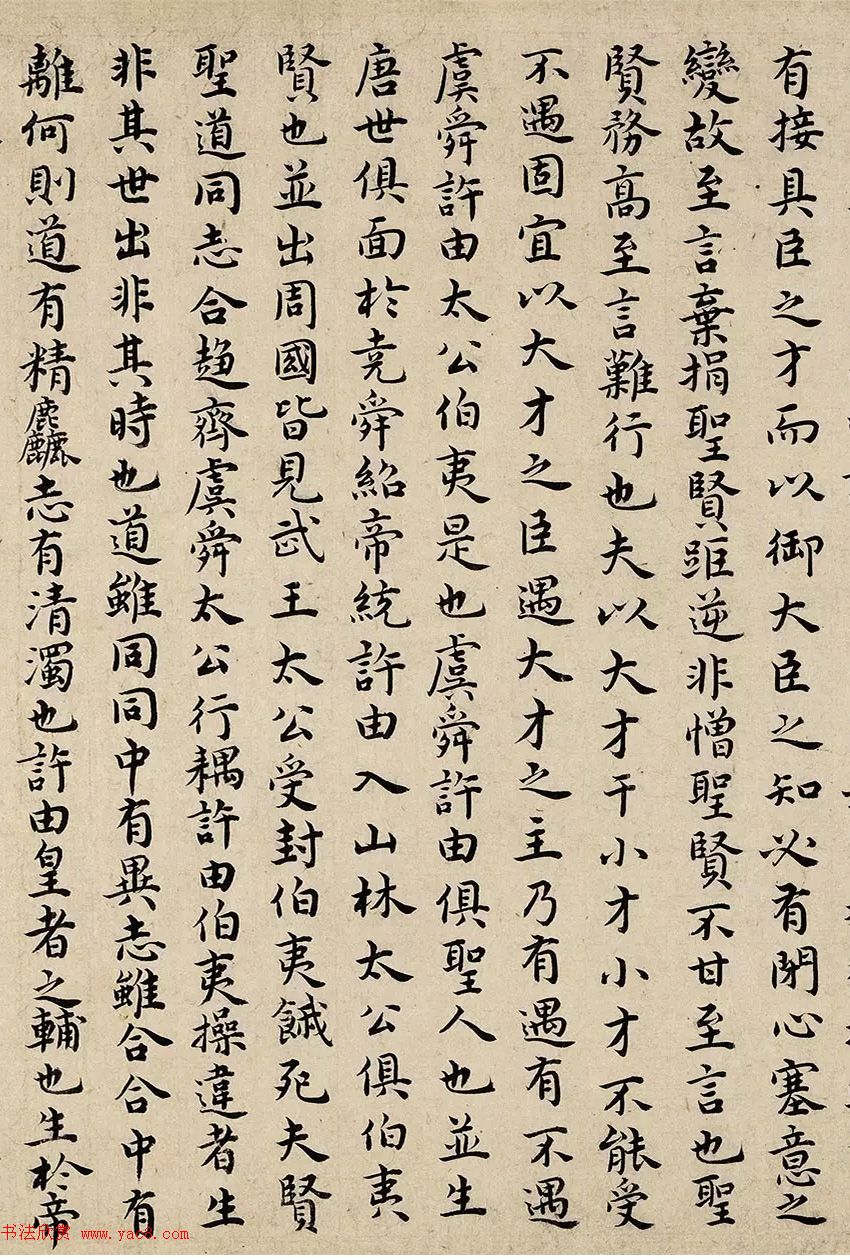 有接具臣之才而以御大臣之知必有閉心塞意之
變故至言棄捐聖賢距逆非憎聖賢不甘至言也聖
賢務高至言難行也夫以大才干小才小才不能受
不遇固宜以大才之臣遇大才之主乃有遇有不遇
虞舜許由太公伯夷是也虞舜許由俱聖人也並生
唐世俱面於堯舜紹帝統許由入山林太公俱伯夷
賢也並出周國皆見武王太公受封伯夷餓死夫賢
聖道同志合趨齊虞舜太公行耦許由伯夷操違者生
非其世出非其時也道雖同同中有異志雖合合中有
離何則道有精麤志有清濁也許由皇者之輔也生於帝
书法欣赏 www.yac8.com